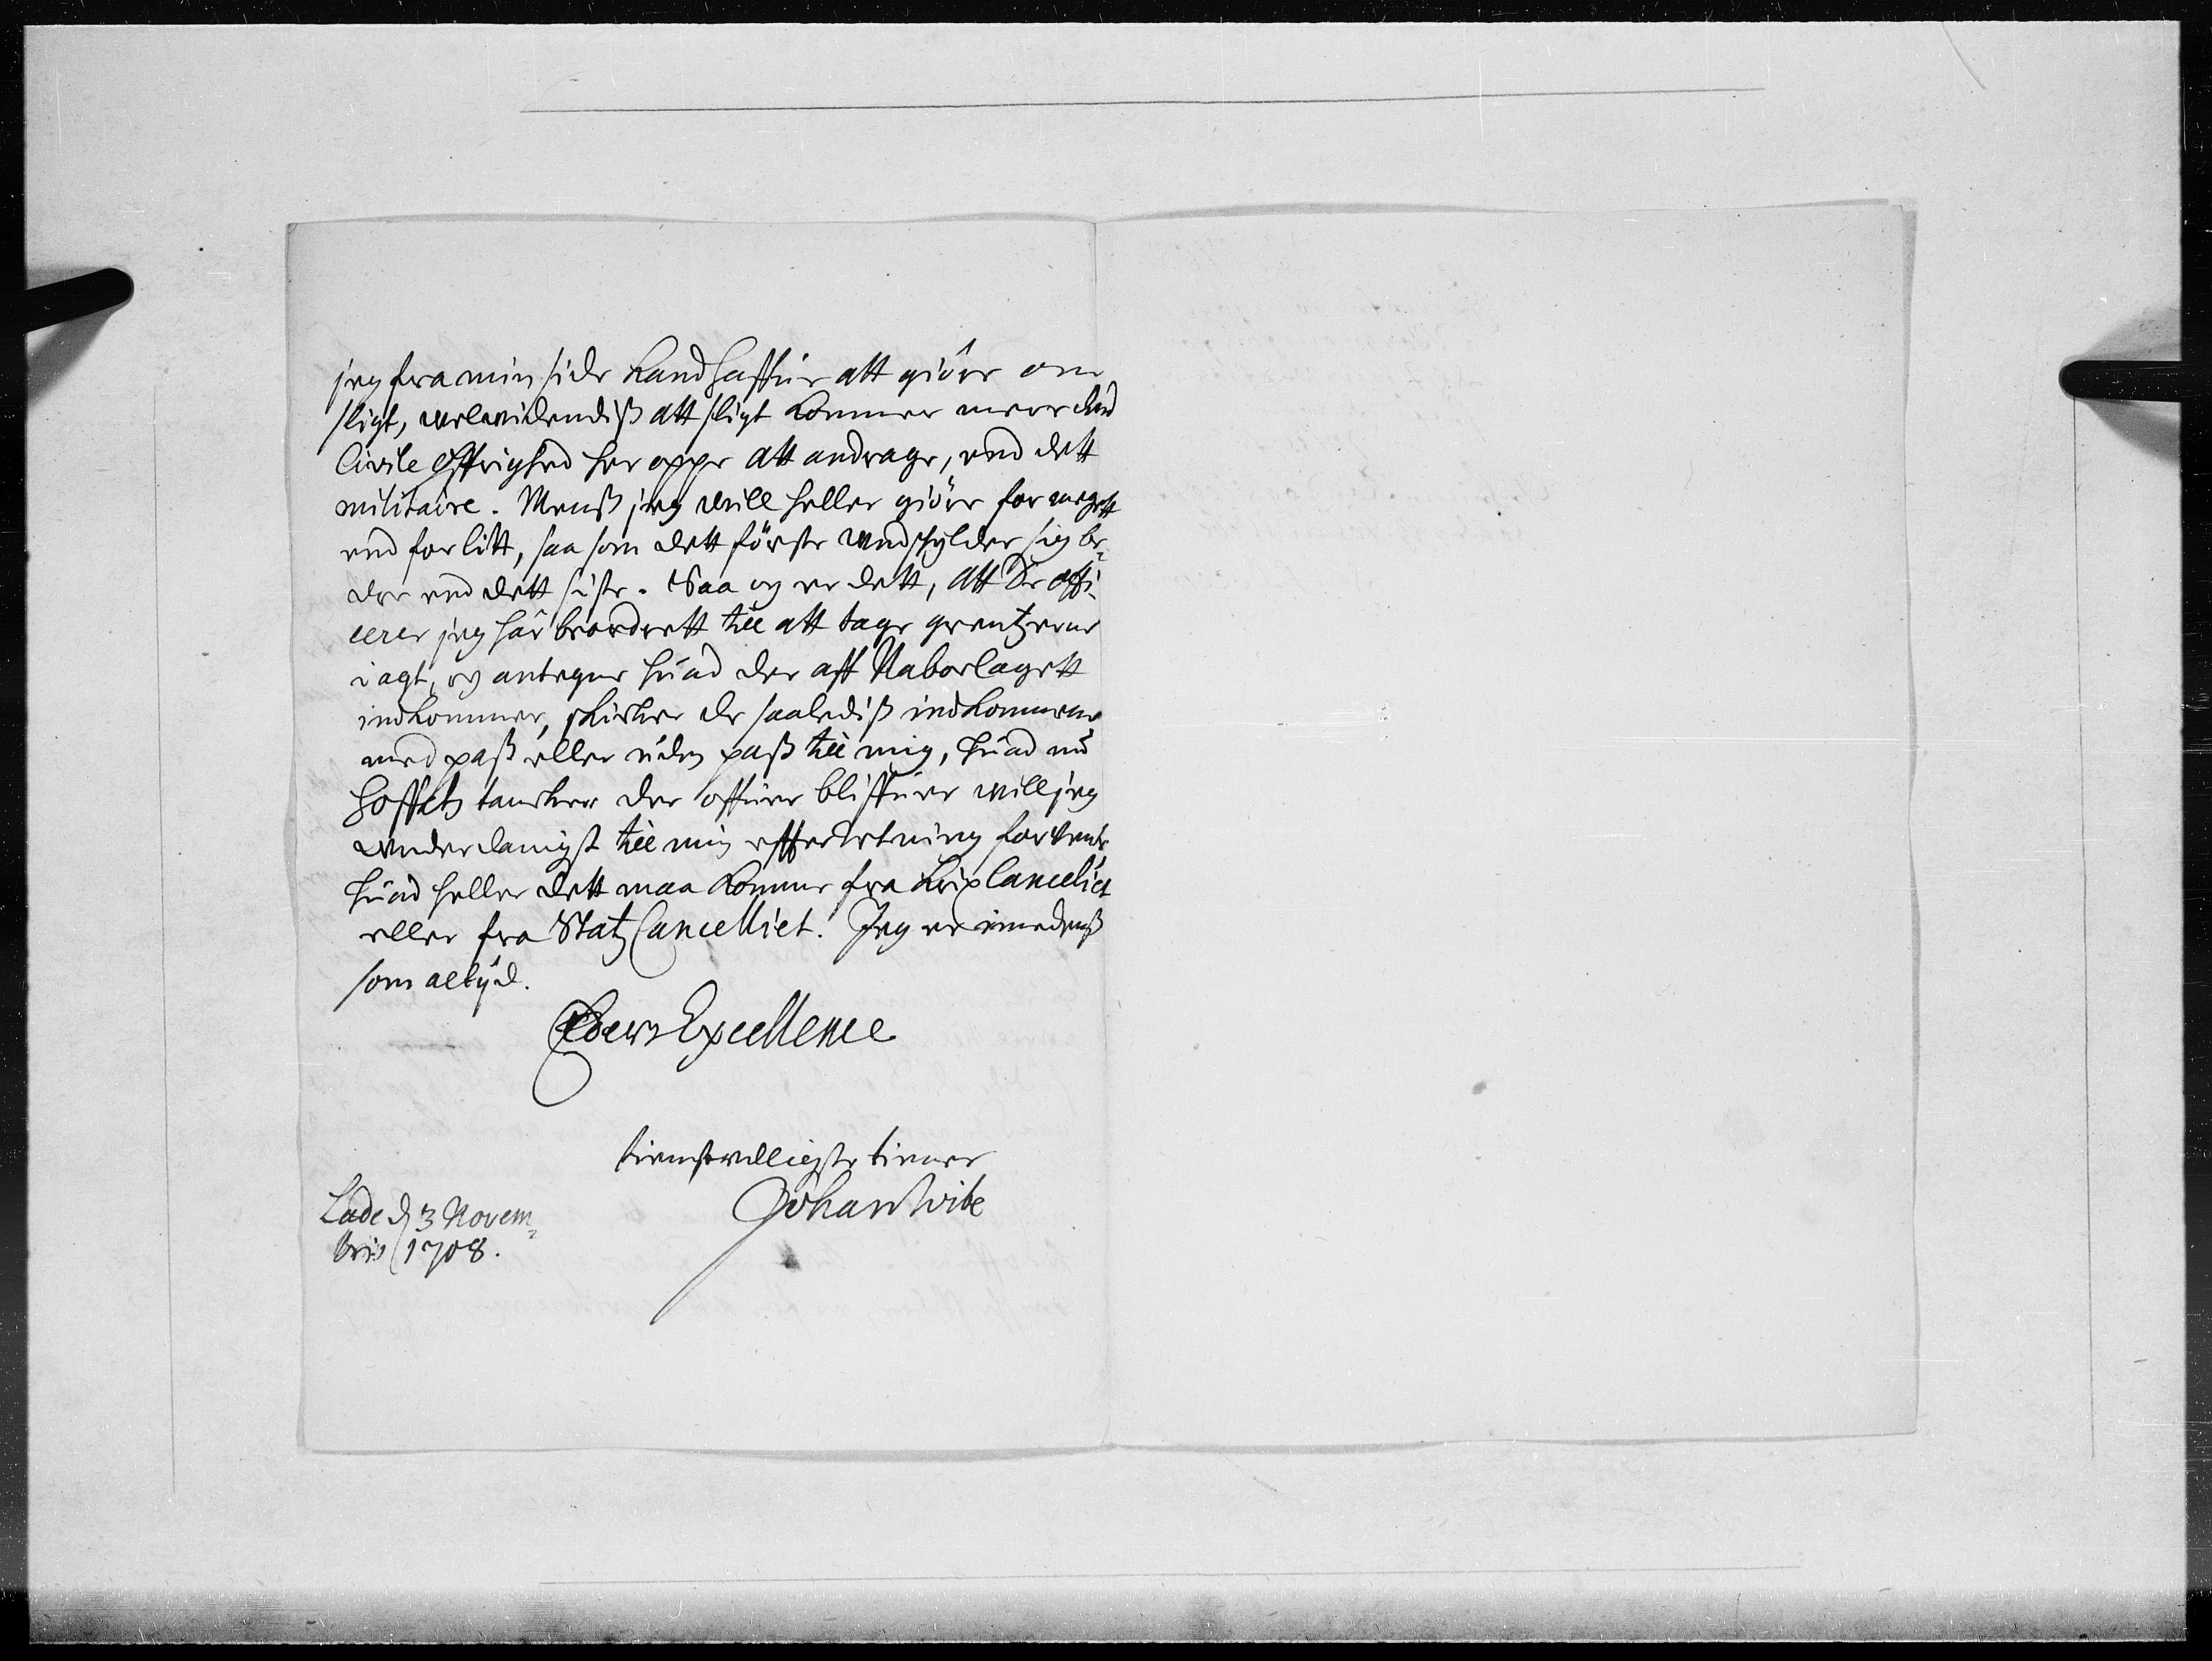 jeg fra min side kand haffue att giöre om
sligt, welwidendiß att sligt kommer meere den
Civile Öffrighed her oppe att andrage, end dett
militaire. Menß jeg will heller giöre for megett
end for litt, saa som dett förste undskylder sig be¬
dre end dett siste. Saa og er dett, att De offi¬
cerer jeg har beordrett till att tage grentzerne
i agt, og antegne huad der aff Naborlagett
indkommer, skicker de saalediß indkommene
med paß eller uden paß till mig, huad nu
hoffets tancker der offuer bliffuer will jeg
underdanigst till min effterretning forvente
huad heller dett maa komme fra KrigsCancelliet
eller fra StatzCancelliet. Jeg er imedenß
som altijd.
Eders Excellence
tienstvilligste tiener
Johan Wibe
Lade d 3 Novem¬
bris 1708.